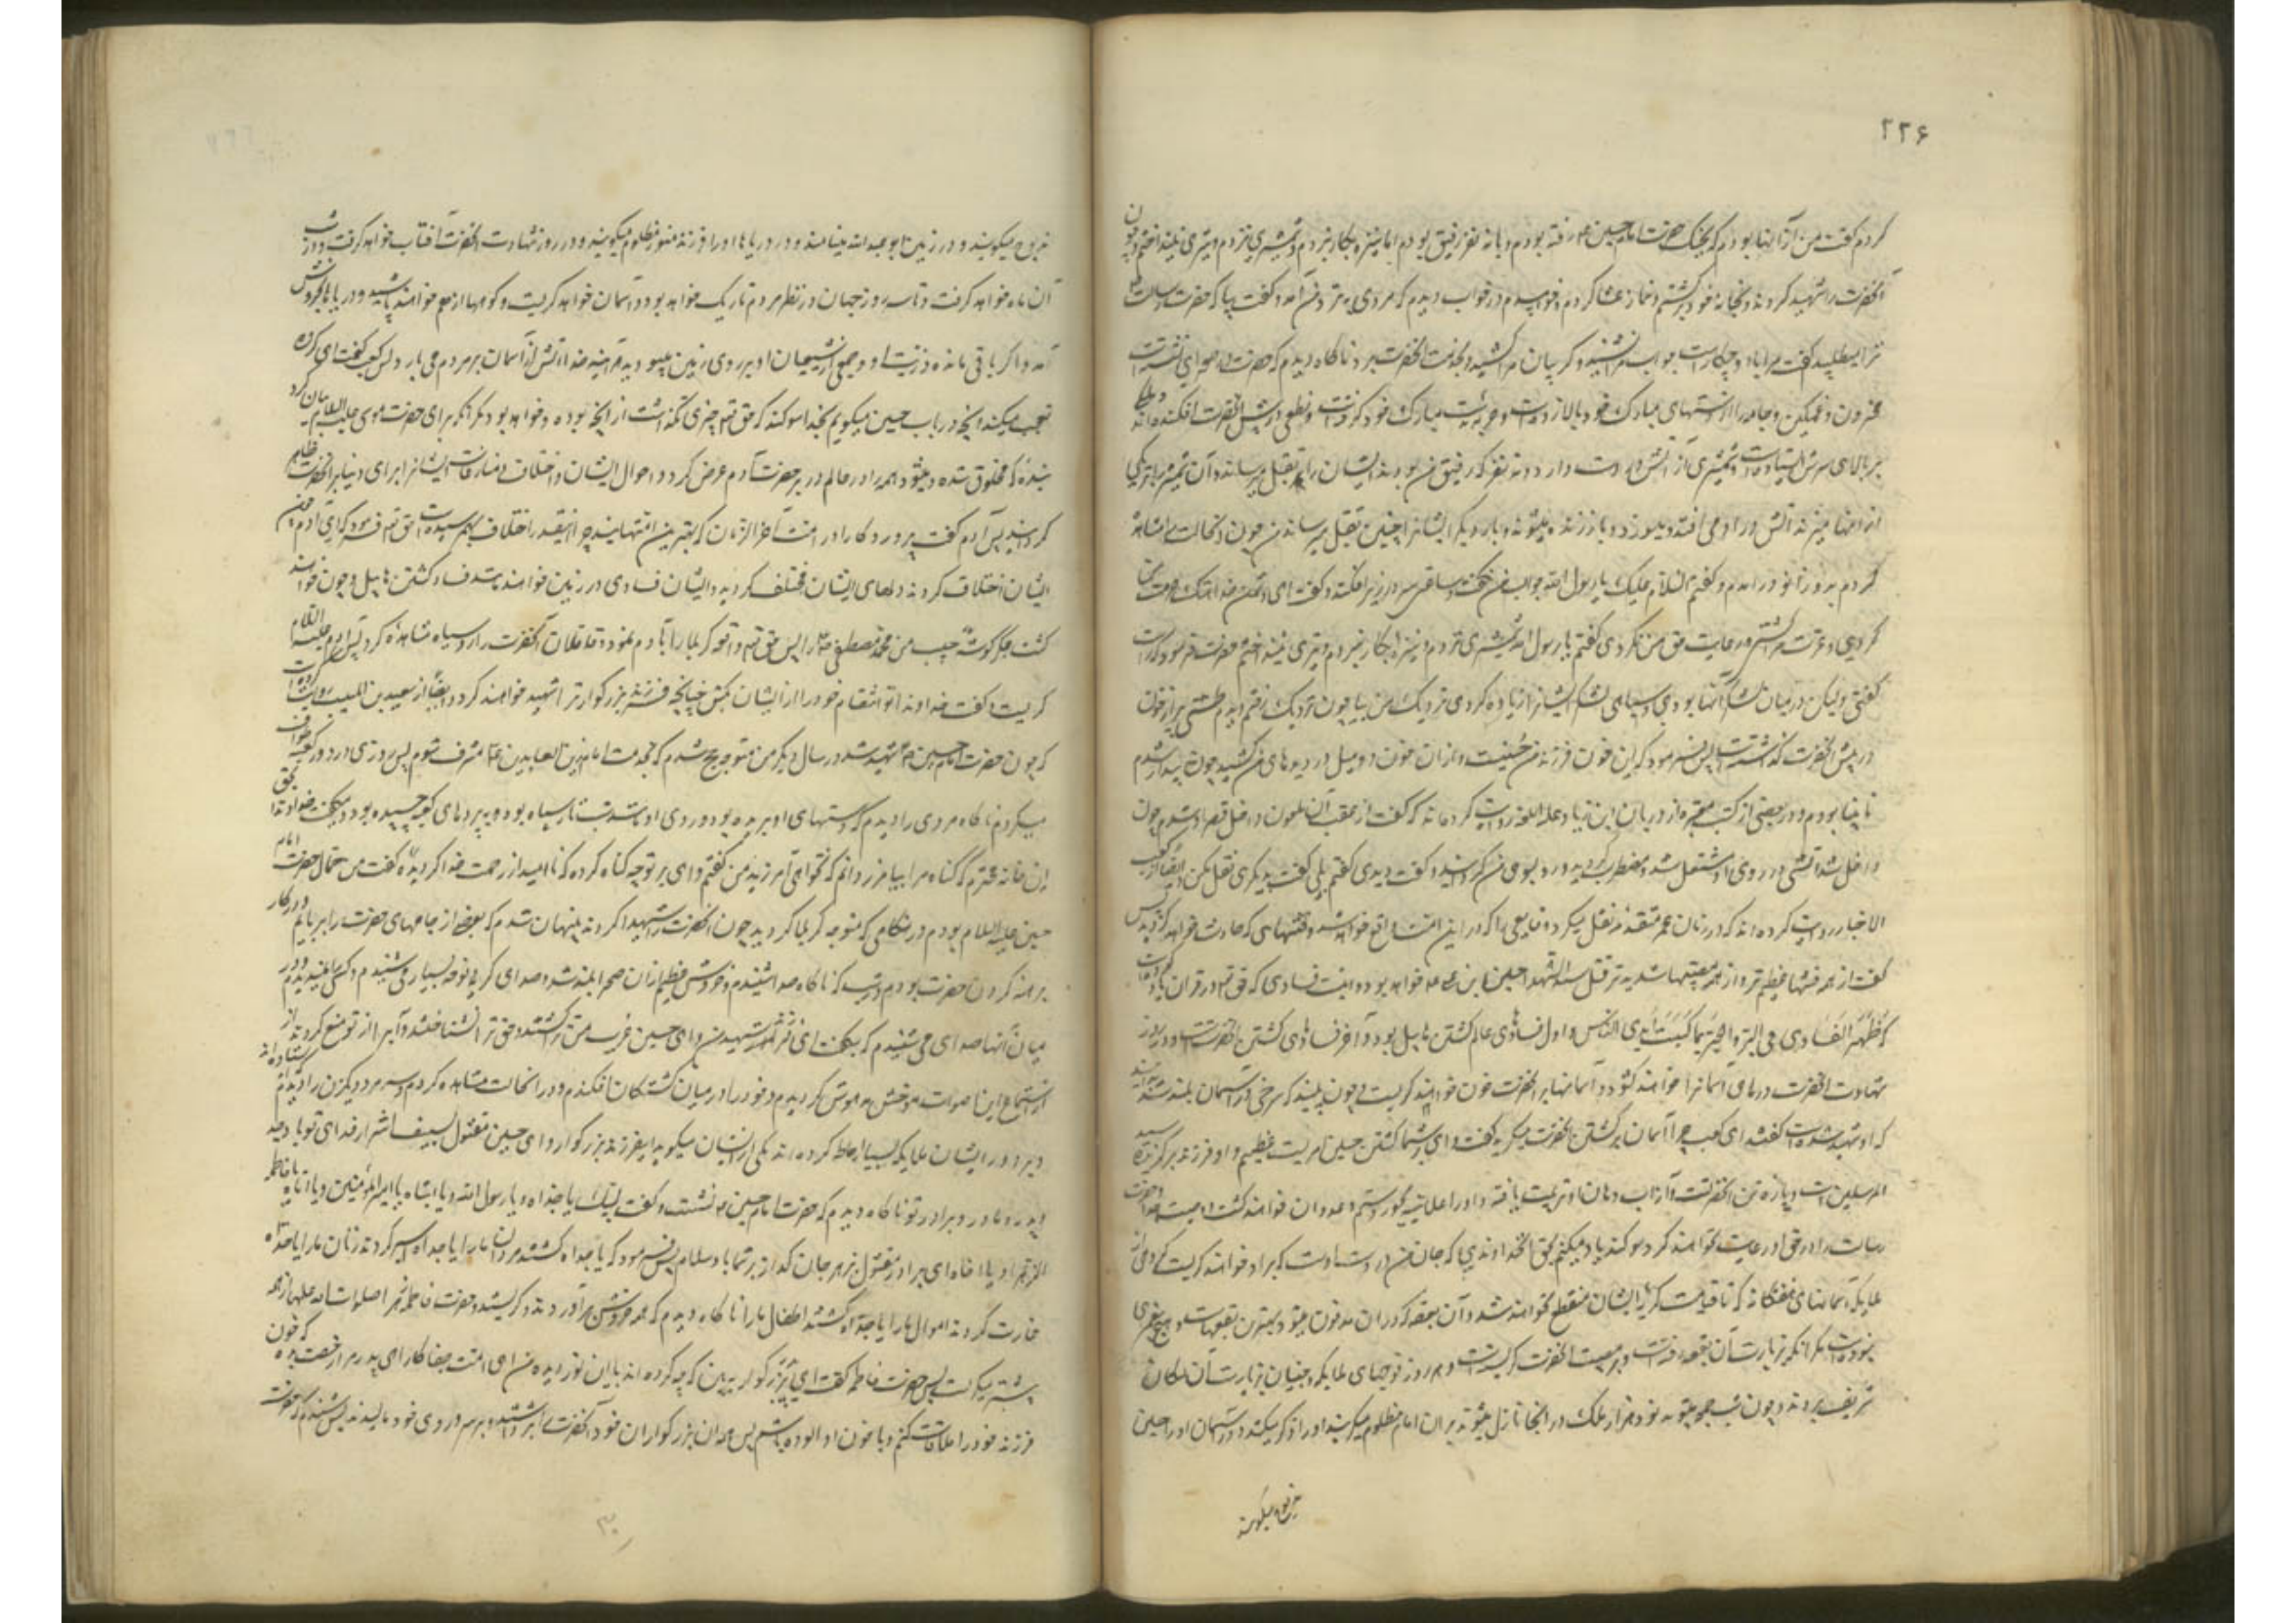 ۲۲۶
کردم گفت من از آنها بودم که بجنگ حضرت امام حسین ع رفته بودم و با نه نفر رفیق بودم اما نیزه بکار نبردم و شمشیری نزدم و تیری نینداختم و چون
آنحضرت را شهید کردند و بخانه خود برگشتم و نماز عشا کردم و خوابیدم در خواب دیدم که مردی بنزد من آمد و گفت بیا که حضرت رسالت
ترا میطلبد گفتم مرا باو چکار است جواب مرا نشنید و گریبان مرا کشید و بخدمت آنحضرت برد ناگاه دیدم که حضرت در صحرائی نشسته است
محزون و غمگین و جامه را از دستهای مبارک خود بالا زده است و حربه بدست مبارک خود گرفته است و نطعی در پیش آنحضرت افکنده اند و ملکی
بر بالای سرش ایستاده است و شمشیری از آتش در دست دارد و نه نفر که رفیق من بودند ایشان را بقتل میرساند و آن شمشیر را بهر یکی
از آنها میزند آتش در او می افتد و میسوزد و باز زنده میشوند و بار دیگر ایشانرا چنین بقتل میرساند من چون آنحالت را مشاهده
کردم بدو زانو در آمدم و گفتم السلام علیک یا رسول الله جواب من نگفت و ساعتی سر در زیر افکند و گفت ای دشمن خدا هتک حرمت من
کردی و عترت مرا کشتی و رعایت حق من نکردی گفتم یا رسول الله شمشیری نزدم و نیزه بکار نبردم و تیری نینداختم حضرت فرمود که راست
گفتی ولیکن در میان لشکر آنها بودی و سیاهی لشکر ایشانرا زیاده کردی نزدیک من بیا چون نزدیک رفتم دیدم طشتی پر از خون
در پیش آنحضرت گذاشته است پس فرمود که این خون فرزند من حسینست و از آن خون دو میل در دیده های من کشید چون بیدار شدم
نابینا بودم و در بعضی از کتب معتبره از دربان ابن زیاد علیه اللعنه روایت کرده اند که گفت از عقب آن ملعون داخل قصر او شدم چون
داخل شد آتشی در روی او مشتعل شد و مضطرب گردید و رو بسوی من گردانید و گفت دیدی گفتم بلی گفت بدیگری نقل مکن و ایضا از کعب
الاخبار روایت کرده اند که در زمان عمر از کتب متقدمه نقل میکرد وقایعی را که در این امت واقع خواهد شد و فتنهائی که حادث خواهد گردید پس
گفت از همه فتنها عظیم تر و از همه مصیبتها شدید تر قتل سید الشهدا حسین بن علی ع خواهد بود و اینست فسادی که حق تعالی در قرآن یاد کرده است
که ظهر الفساد فی البر و البحر بما کسبت ایدی الناس و اول فسادهای عالم کشتن هابیل بود و آخر فسادهای کشتن آنحضرت است و در روز
شهادت آنحضرت درهای آسمانرا خواهند گشود و آسمانها بر آنحضرت خون خواهند گریست چون ببینید که سرخی در آسمان بلند شد بدانید
که او شهید شده است گفتند ای کعب چرا آسمان بر کشتن آنحضرت میگرید گفت وای بر شما کشتن حسین امریست عظیم و او فرزند برگزیده سید
المرسلین است و پاره تن آنحضرتست و از آب دهان او تربیت یافته و او را علانیه بجور و ستم و عدوان خواهند کشت و وصیت جد او حضرت
رسالت را در حق او رعایت نخواهند کرد سوگند یاد میکنم بحق آنخداوندی که جان من در دست اوست که بر او خواهند گریست گروهی از
ملایکه آسمانهای هفتگانه که تا قیامت گریه ایشان منقطع نخواهد شد و آن بقعه که در آن مدفون میشود بهترین بقعهاست و هیچ پیغمبری
نبوده است مگر آنکه بزیارت آن بقعه رفته است و بر مصیبت آنحضرت گریسته است و هر روز فوجهای ملایکه و جنیان بزیارت آن مکان
شریف میروند و چون شب جمعه میشود نود هزار ملک در آنجا نازل میشوند بر آن امام مظلوم میگریند و او را ذکر میکنند و در آسمان او را حسین
مذبوح میگویند
مذبوح میگویند و در زمین ابو عبدالله مینامند و در دریاها او را فرزند منور مظلوم میگویند و در روز شهادت آنحضرت آفتاب خواهد گرفت و در شب
آن ماه خواهد گرفت و تا سه روز جهان در نظر مردم تاریک خواهد بود و آسمان خواهد گریست و کوهها از هم خواهند پاشید و دریاها بخروش
آمد و اگر باقی مانده ذریت او و جمعی از شیعیان او بر روی زمین نمیبودند هر آینه خدا آتش از آسمان بر مردم می بارید پس کعب گفت ای گروه
تعجب میکنید آنچه در باب حسین میگویم بخدا سوگند که حق تعالی چیزی نگذاشت از آنچه بوده و خواهد بود مگر آنکه برای حضرت موسی علیه السلام بیان کرد
بنده که مخلوق شده و میشود همه را در عالم ذر بر حضرت آدم عرض کرد و احوال ایشان و اختلاف و منازعات ایشانرا برای دنیا بر آنحضرت ظاهر
گردانید پس آدم گفت پروردگارا در امت آخر الزمان که بهترین امتهایند چرا اینقدر اختلاف بهم رسیده است حق تعالی فرمود که ای آدم چون
ایشان اختلاف کردند دلهای ایشان مختلف گردید و ایشان فسادی در زمین خواهند کرد مانند فساد کشتن هابیل و چون خواهند
کشت جگر گوشه حبیب من محمد مصطفی ص را پس حق تعالی واقعه کربلا را بآدم نمود و قاتلان آنحضرت را رو سیاه مشاهده کرد پس آدم علیه السلام
گریست و گفت خداوندا تو انتقام خود را از ایشان بکش چنانچه فرزند پیغمبر بزرگوار ترا شهید خواهند کرد و ایضا از سعید بن المسیب روایت کرده اند
که چون حضرت امام حسین ع شهید شد در سال دیگر من متوجه حج شدم که بخدمت امام زین العابدین ع مشرف شوم پس روزی در دور کعبه طواف
میکردم ناگاه مردی را دیدم که دستهای او بریده بود و روی او مانند شب تار سیاه بود و به پردهای کعبه چسبیده بود و میگفت خداوندا بحق
این خانه محترم که گناه مرا بیامرز و دانم که نخواهی آمرزید من گفتم وای بر تو چه گناه کرده که ناامید از رحمت خدا گردیده گفت من جمال حضرت امام
حسین علیه السلام بودم در هنگامی که متوجه کربلا گردید چون آنحضرت را شهید کردند پنهان شدم که بعضی از جامهای حضرت را بربایم و در کار
برهنه کردن حضرت بودم در شب که ناگاه صدا شنیدم و خروش عظیم از آن صحرا بلند شد و صدای گریه و نوحه بسیار می شنیدم و کسی را نمیدیدم و در
میان آنها صدای می شنیدم که میگفت ای فرزند شهید من و ای حسین غریب من ترا کشتند و حق ترا نشناختند و آب را از تو منع کردند از
استماع این اصوات موحش مدهوش گردیدم و خود را در میان کشتگان افکندم و در آنحالت مشاهده کردم سه مرد و یکزن را دیدم که ایستاده اند
و بر دور ایشان ملایکه بسیار احاطه کرده اند یکی از ایشان میگوید ای فرزند بزرگوار و ای حسین مقتول بسیف اشرار فدای تو باد جد
و پدر و مادر و برادر تو ناگاه دیدم که حضرت امام حسین ع نشست و گفت لبیک یا جداه و یا رسول الله و یا ابتاه یا امیر المؤمنین و یا اماه یا فاطمه
الزهرا و یا اخاه ای برادر مقتول بزهر جان گداز بر شما باد سلام پس فرمود که یا جداه کشتند مردان ما را یا جداه اسیر کردند زنان ما را یا جداه
غارت کردند اموال ما را یا جداه کشتند اطفال ما را ناگاه دیدم که همه خروش بر آوردند و گریستند و حضرت فاطمه زهرا صلوات الله علیها از همه
بیشتر میگریست پس حضرت فاطمه گفت ای پدر بزرگوار ببین که چه کرده اند با این نور دیده من این امت جفاکار ای پدر مرا رخصت بده که خون
فرزند خود را ملاقات کنم و با خون او آلوده باشم پس همه آن بزرگواران خون آنحضرت را برداشتند و بر سر و روی خود مالیدند پس شنیدم که حضرت